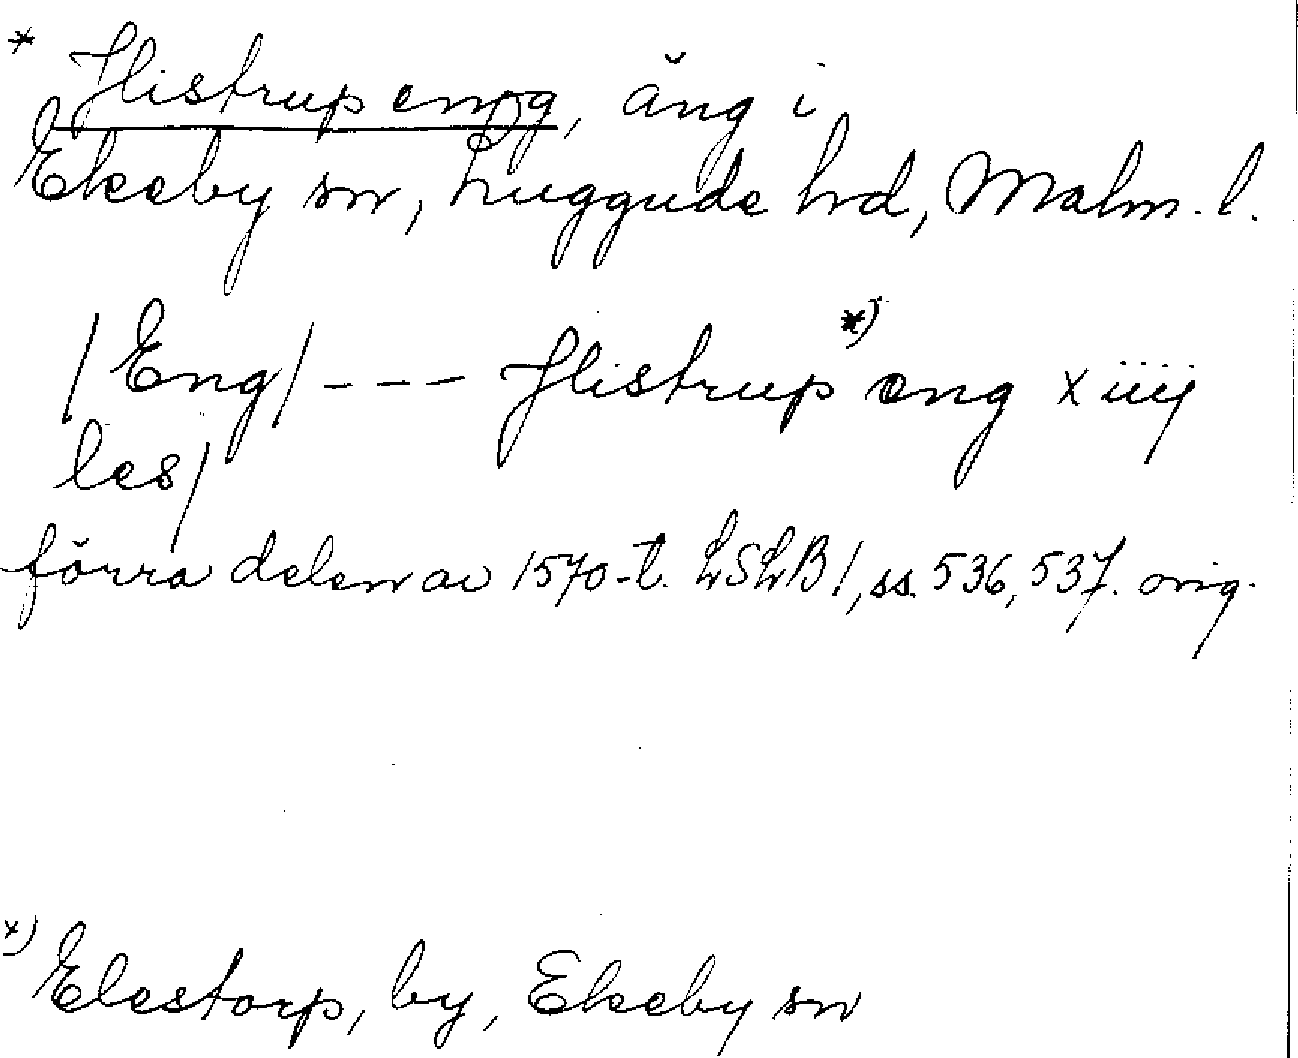 * Jlistrup enng, äng i
Ekeby sn, Luggude hd, Malm. l.
/Eng/ --- Jlistrup *) eng x iiij
les/
förra delen av 1570-t. LSLB 1, ss. 536, 537. orig.
x) Elestorp, by, Ekeby sn